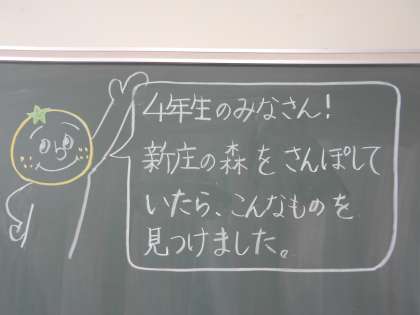 4年生のみなさん!
新庄の森をさんぽして
いたら、こんなものを
見つけました。